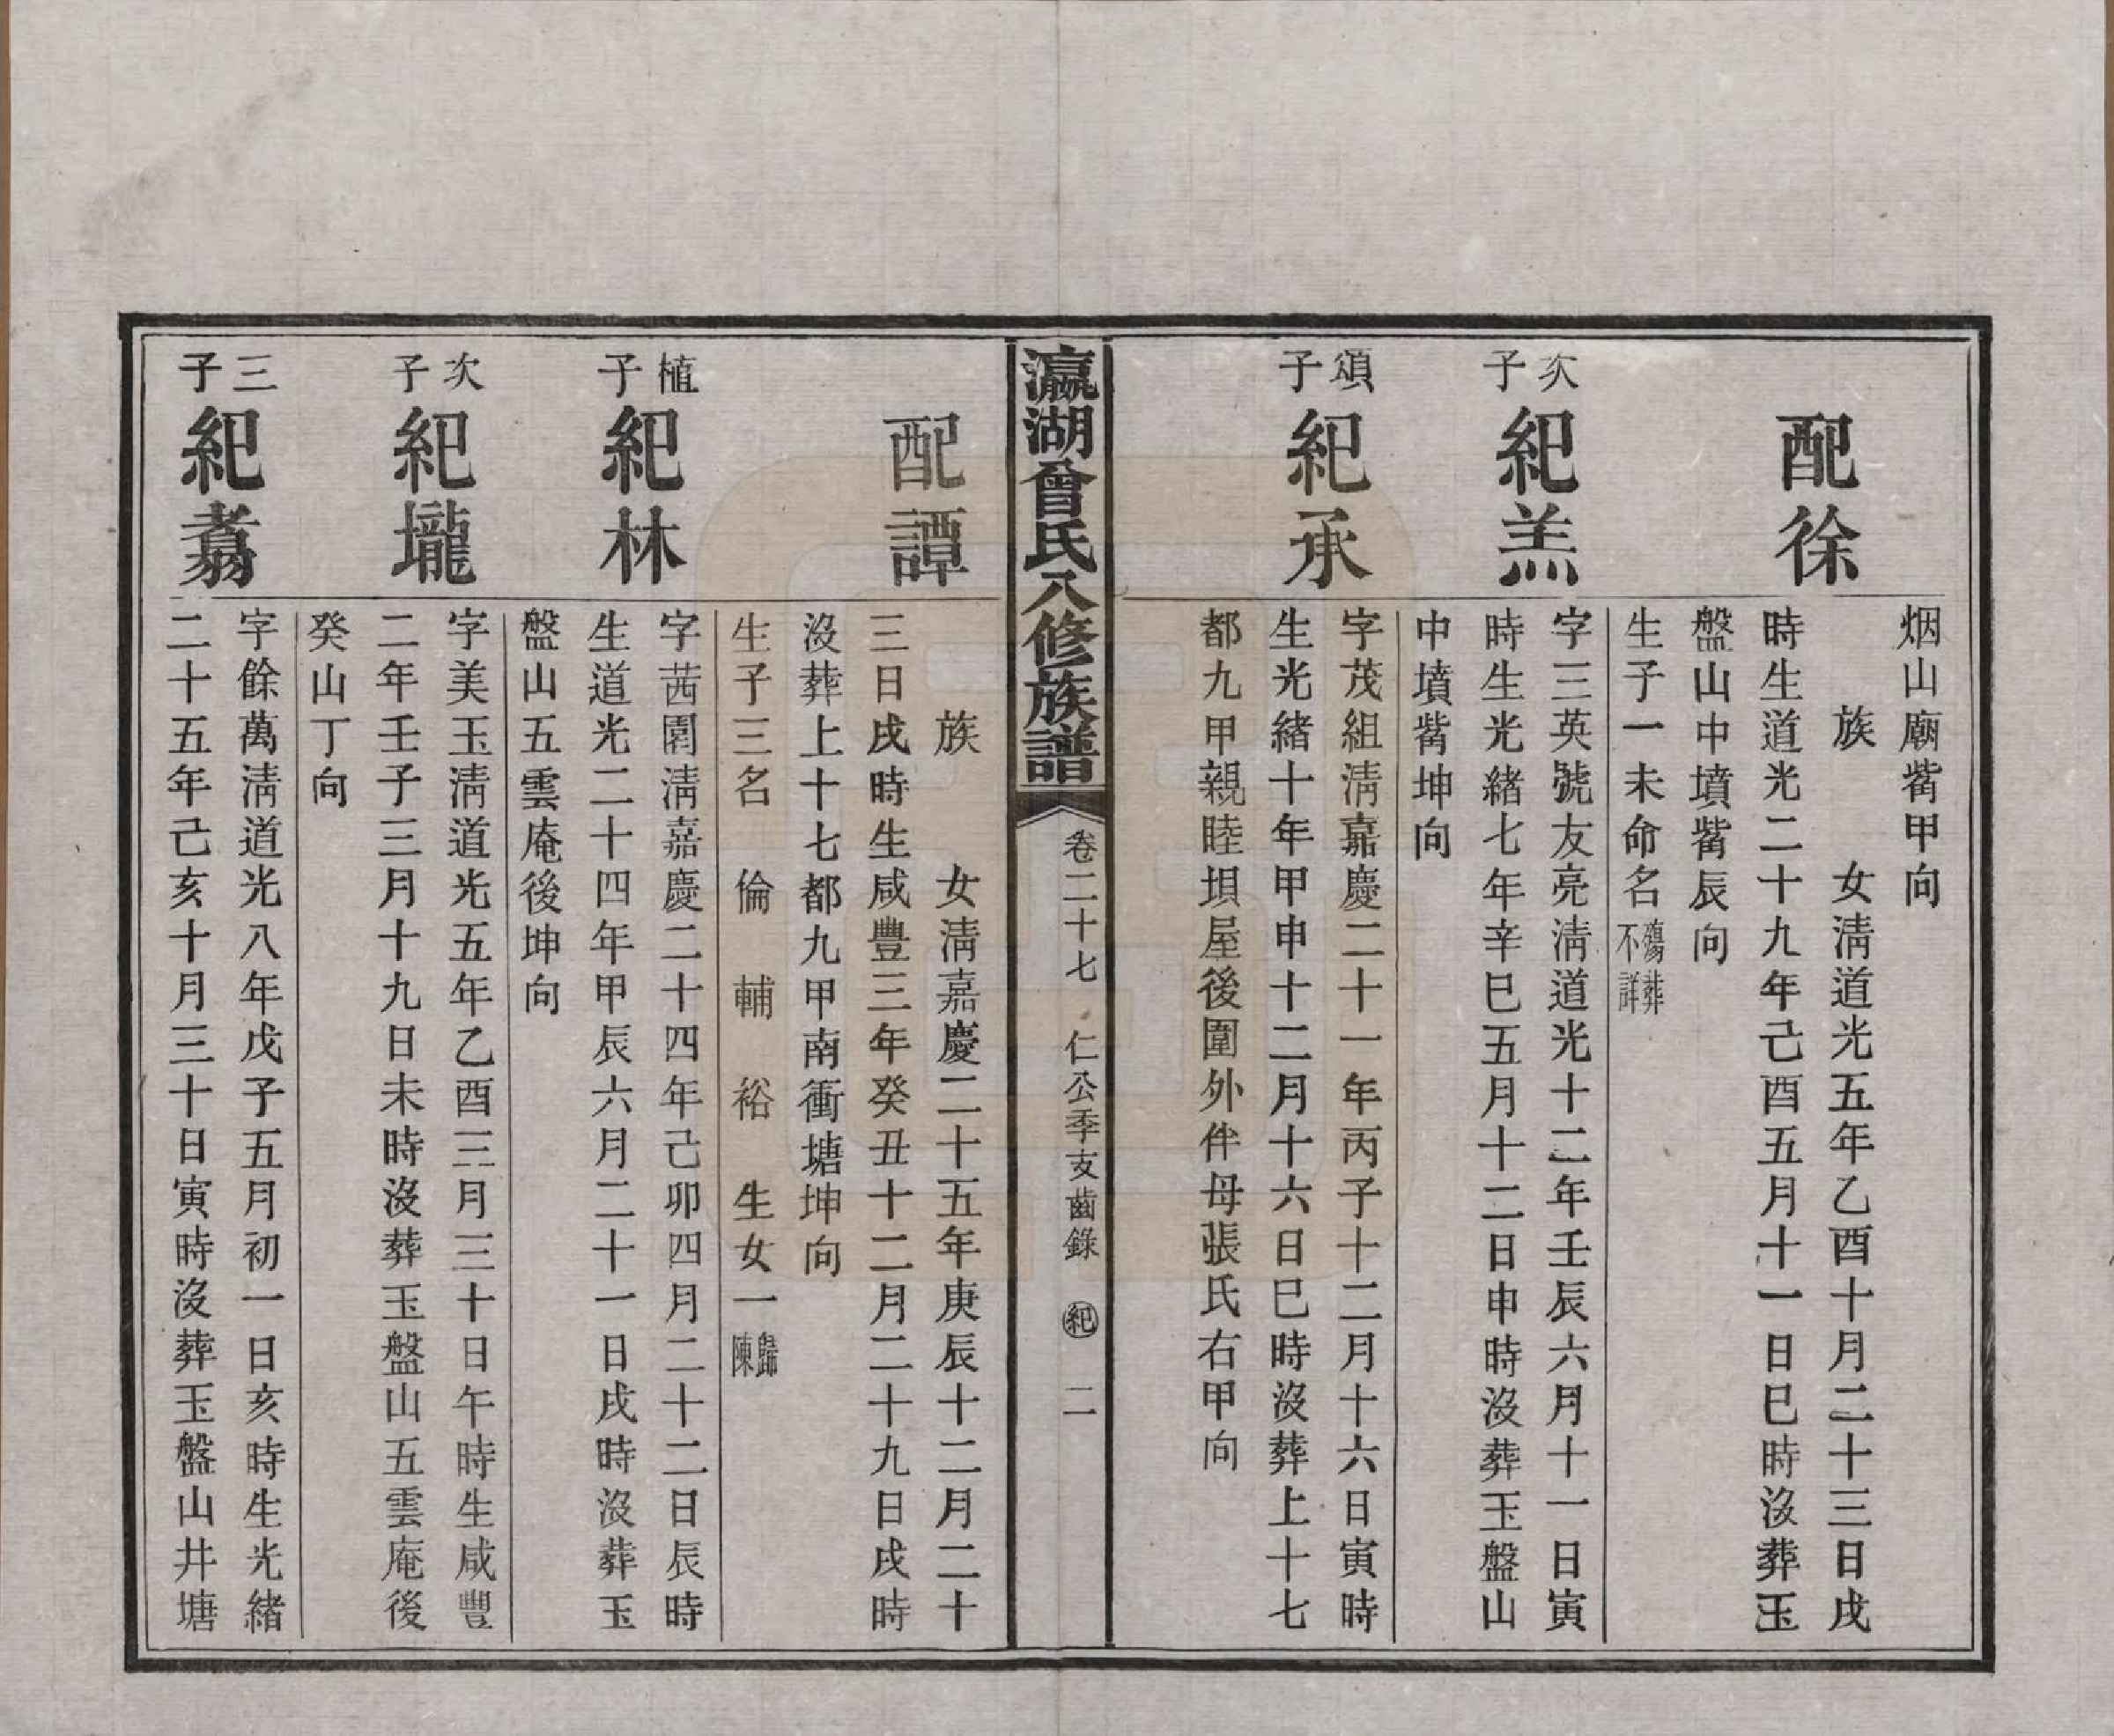 烟山廟觜甲向
配徐
族　女淸道光五年乙酉十月二十三日戌
時生道光二十九年己酉五月十一日巳時沒葬玉
盤山中墳觜辰向
生子一未命名殤葬不詳
次子
紀羔
字三英號友亮淸道光十二年壬辰六月十一日寅
時生光緒七年辛巳五月十二日申時沒葬玉盤山
中墳觜坤向
頌子
紀承
字茂組淸嘉慶二十一年丙子十二月十六日寅時
生光緒十年甲申十二月十六日巳時沒葬上十七
都九甲親睦垻屋後圍外伴母張氏右甲向
瀛湖曾氏八修族譜
卷二十七　仁公季支齒錄　紀　二
配譚
族　女淸嘉慶二十五年庚辰十二月二十
三日戌時生咸豐三年癸丑十二月二十九日戌時
沒葬上十七都九甲南衝塘坤向
生子三名　倫　輔　裕　生女一歸陳
植子
紀林
字茜園淸嘉慶二十四年己卯四月二十二日辰時
生道光二十四年甲辰六月二十一日戌時沒葬玉
盤山五雲庵後坤向
次子
紀壠
字美玉淸道光五年乙酉三月三十日午時生咸豐
二年壬子三月十九日未時沒葬玉盤山五雲庵後
癸山丁向
三子
紀翥
字餘萬淸道光八年戊子五月初一日亥時生光緒
二十五年己亥十月三十日寅時沒葬玉盤山井塘